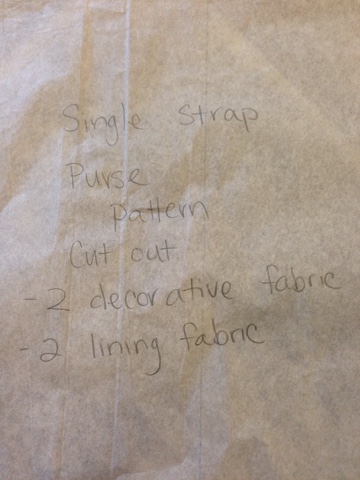 Single Strap
Purse
Pattern
Cut out
- 2 decorative fabric
- 2 lining fabric